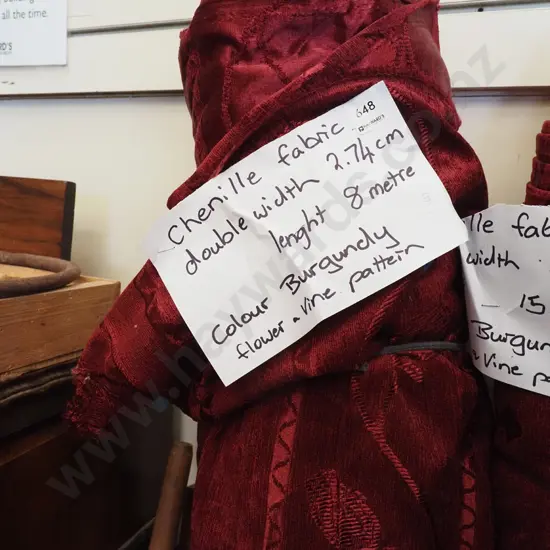 all the time.
RD'S
648
Chenille fabric
double width 2.74cm
lenght 8 metre
Colour Burgundy
flower & Vine pattern
lle fab
width
15
Burgun
& Vine pa
www.haywards.co.nz